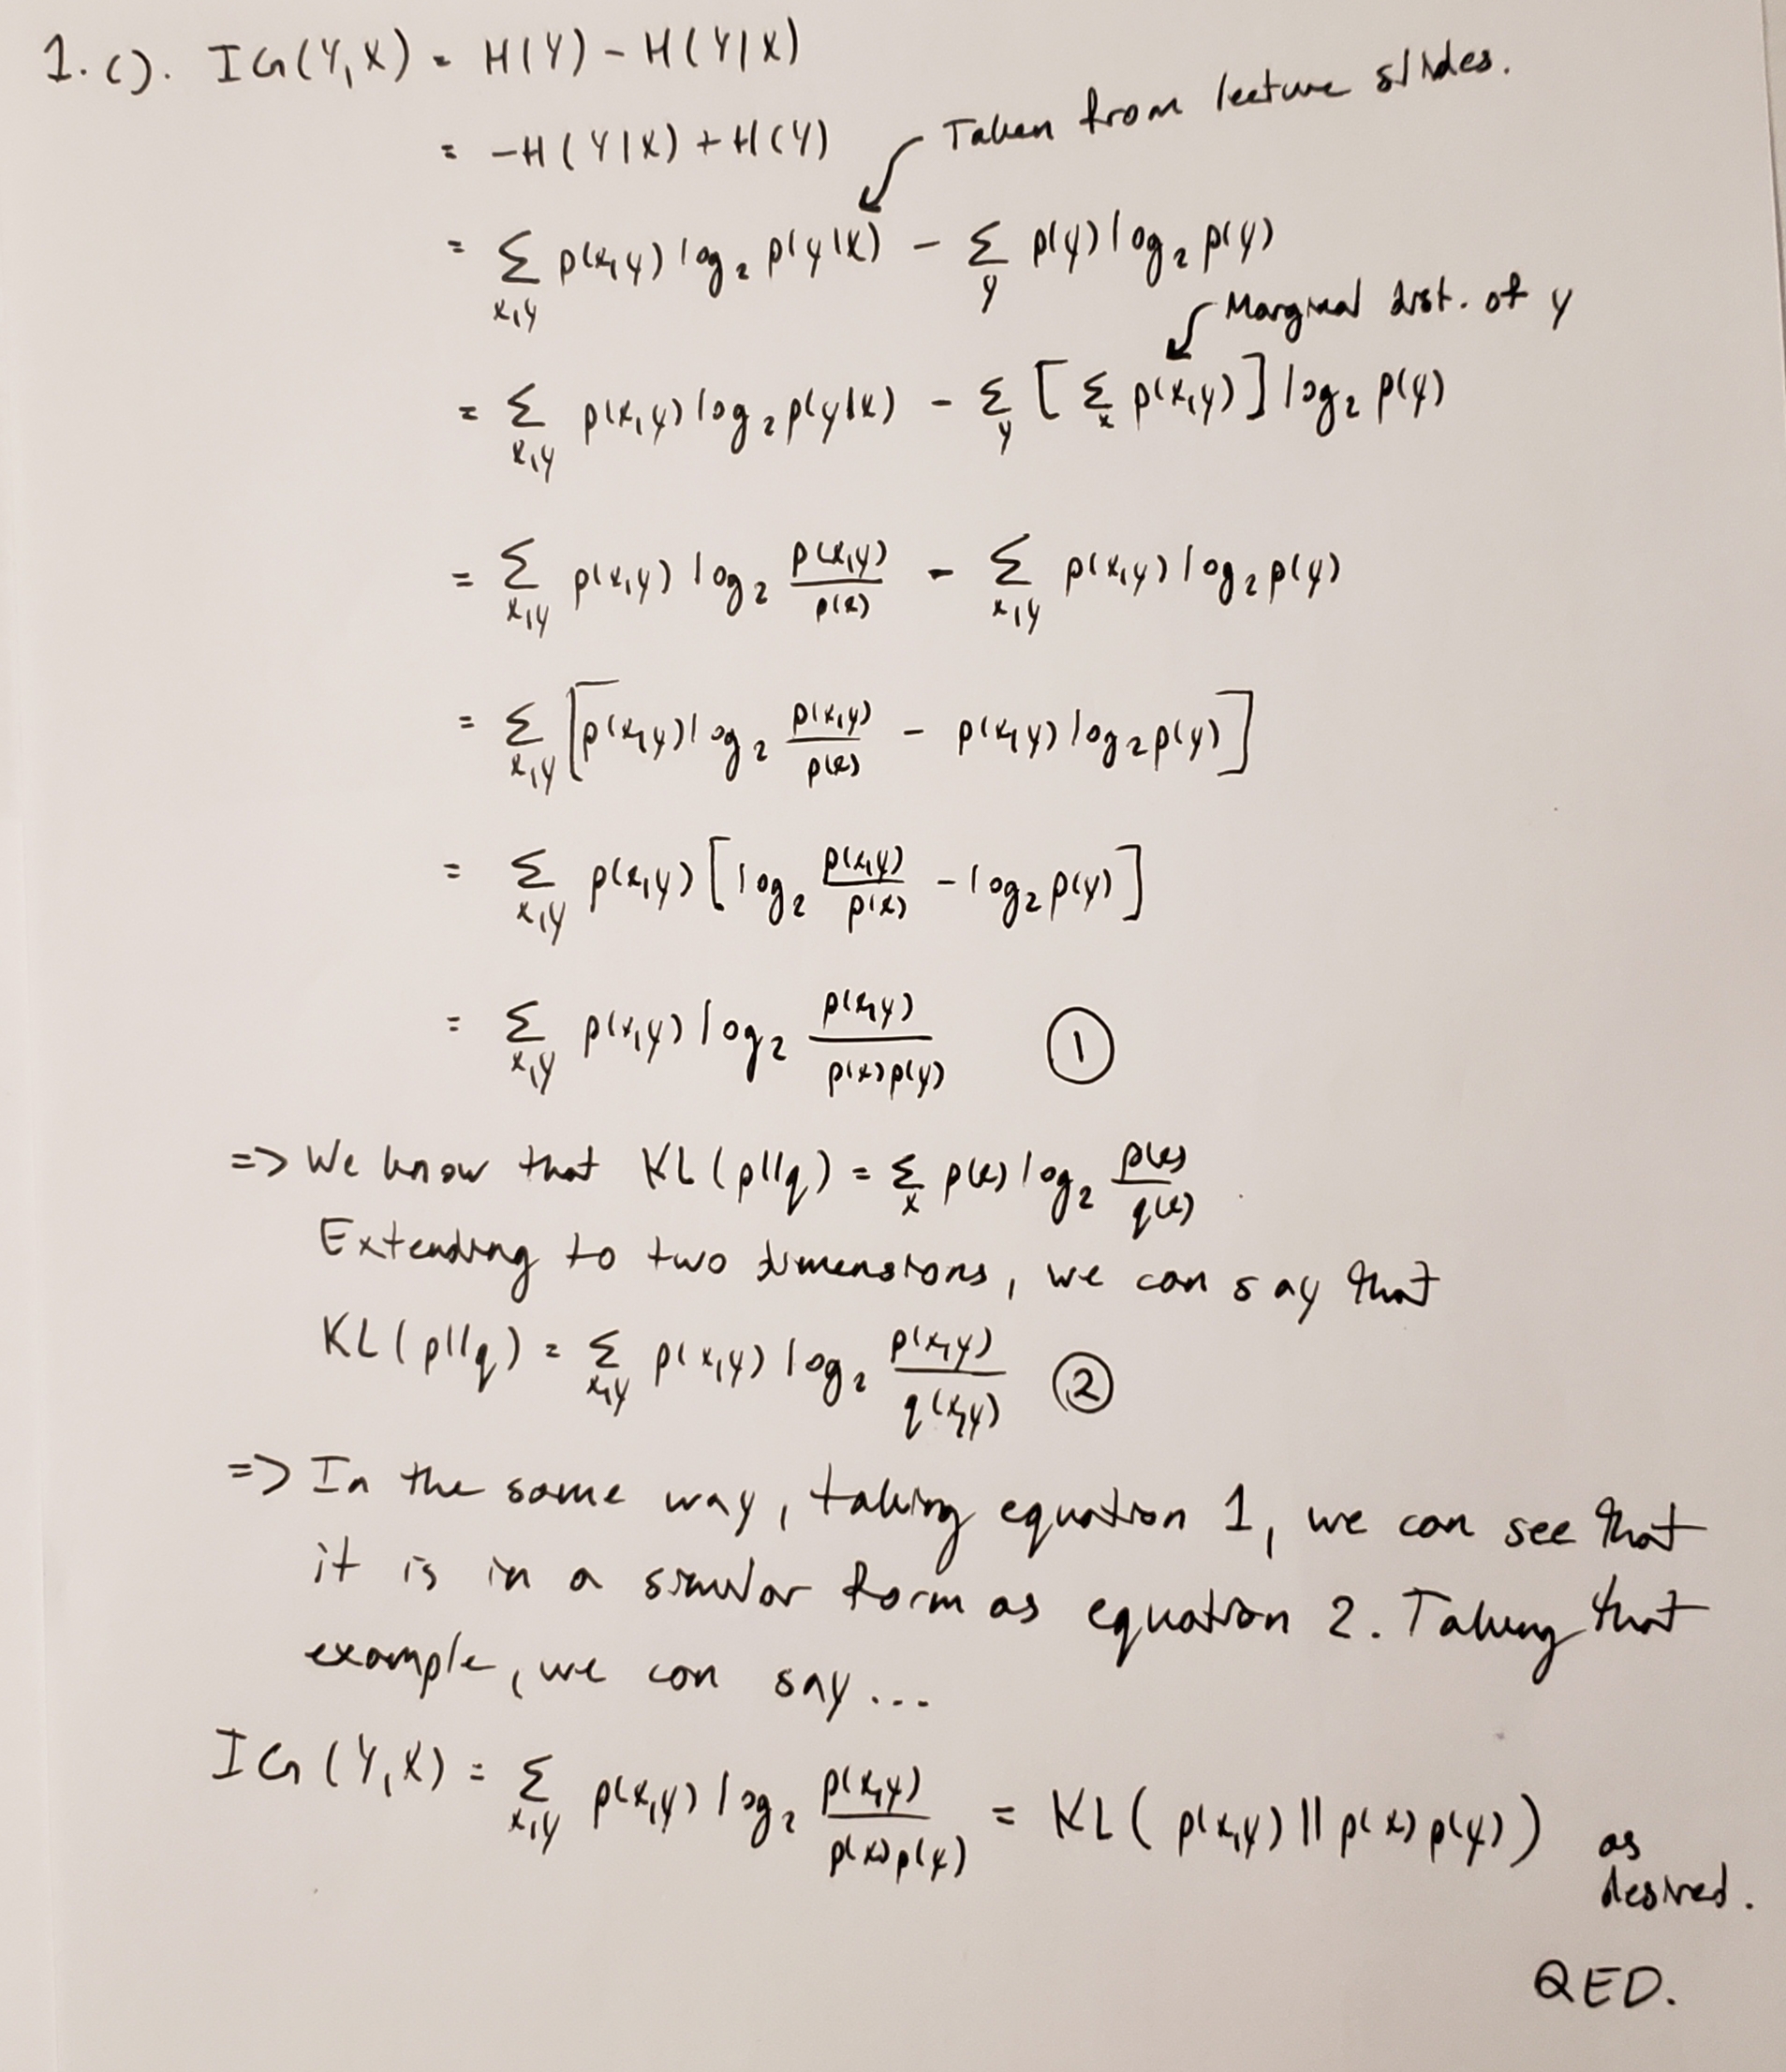 1. c). IG(Y,X) = H(Y) - H(Y|X)
= -H(Y|X) + H(Y)
Taken from lecture slides.
= Σ_{x,y} p(x,y) log₂ p(y|x) - Σ_y p(y) log₂ p(y)
Marginal dist. of y
= Σ_{x,y} p(x,y) log₂ p(y|x) - Σ_y [Σ_x p(x,y)] log₂ p(y)
= Σ_{x,y} p(x,y) log₂ p(x,y)/p(x) - Σ_{x,y} p(x,y) log₂ p(y)
= Σ_{x,y} [p(x,y) log₂ p(x,y)/p(x) - p(x,y) log₂ p(y)]
= Σ_{x,y} p(x,y) [log₂ p(x,y)/p(x) - log₂ p(y)]
= Σ_{x,y} p(x,y) log₂ p(x,y)/p(x)p(y) ①
=> We know that KL(p||q) = Σ_x p(x) log₂ p(x)/q(x).
Extending to two dimensions, we can say that
KL(p||q) = Σ_{x,y} p(x,y) log₂ p(x,y)/q(x,y) ②
=> In the same way, taking equation 1, we can see that
it is in a similar form as equation 2. Taking that
example, we can say...
IG(Y,X) = Σ_{x,y} p(x,y) log₂ p(x,y)/p(x)p(y) = KL(p(x,y)||p(x)p(y)) as
desired.
QED.